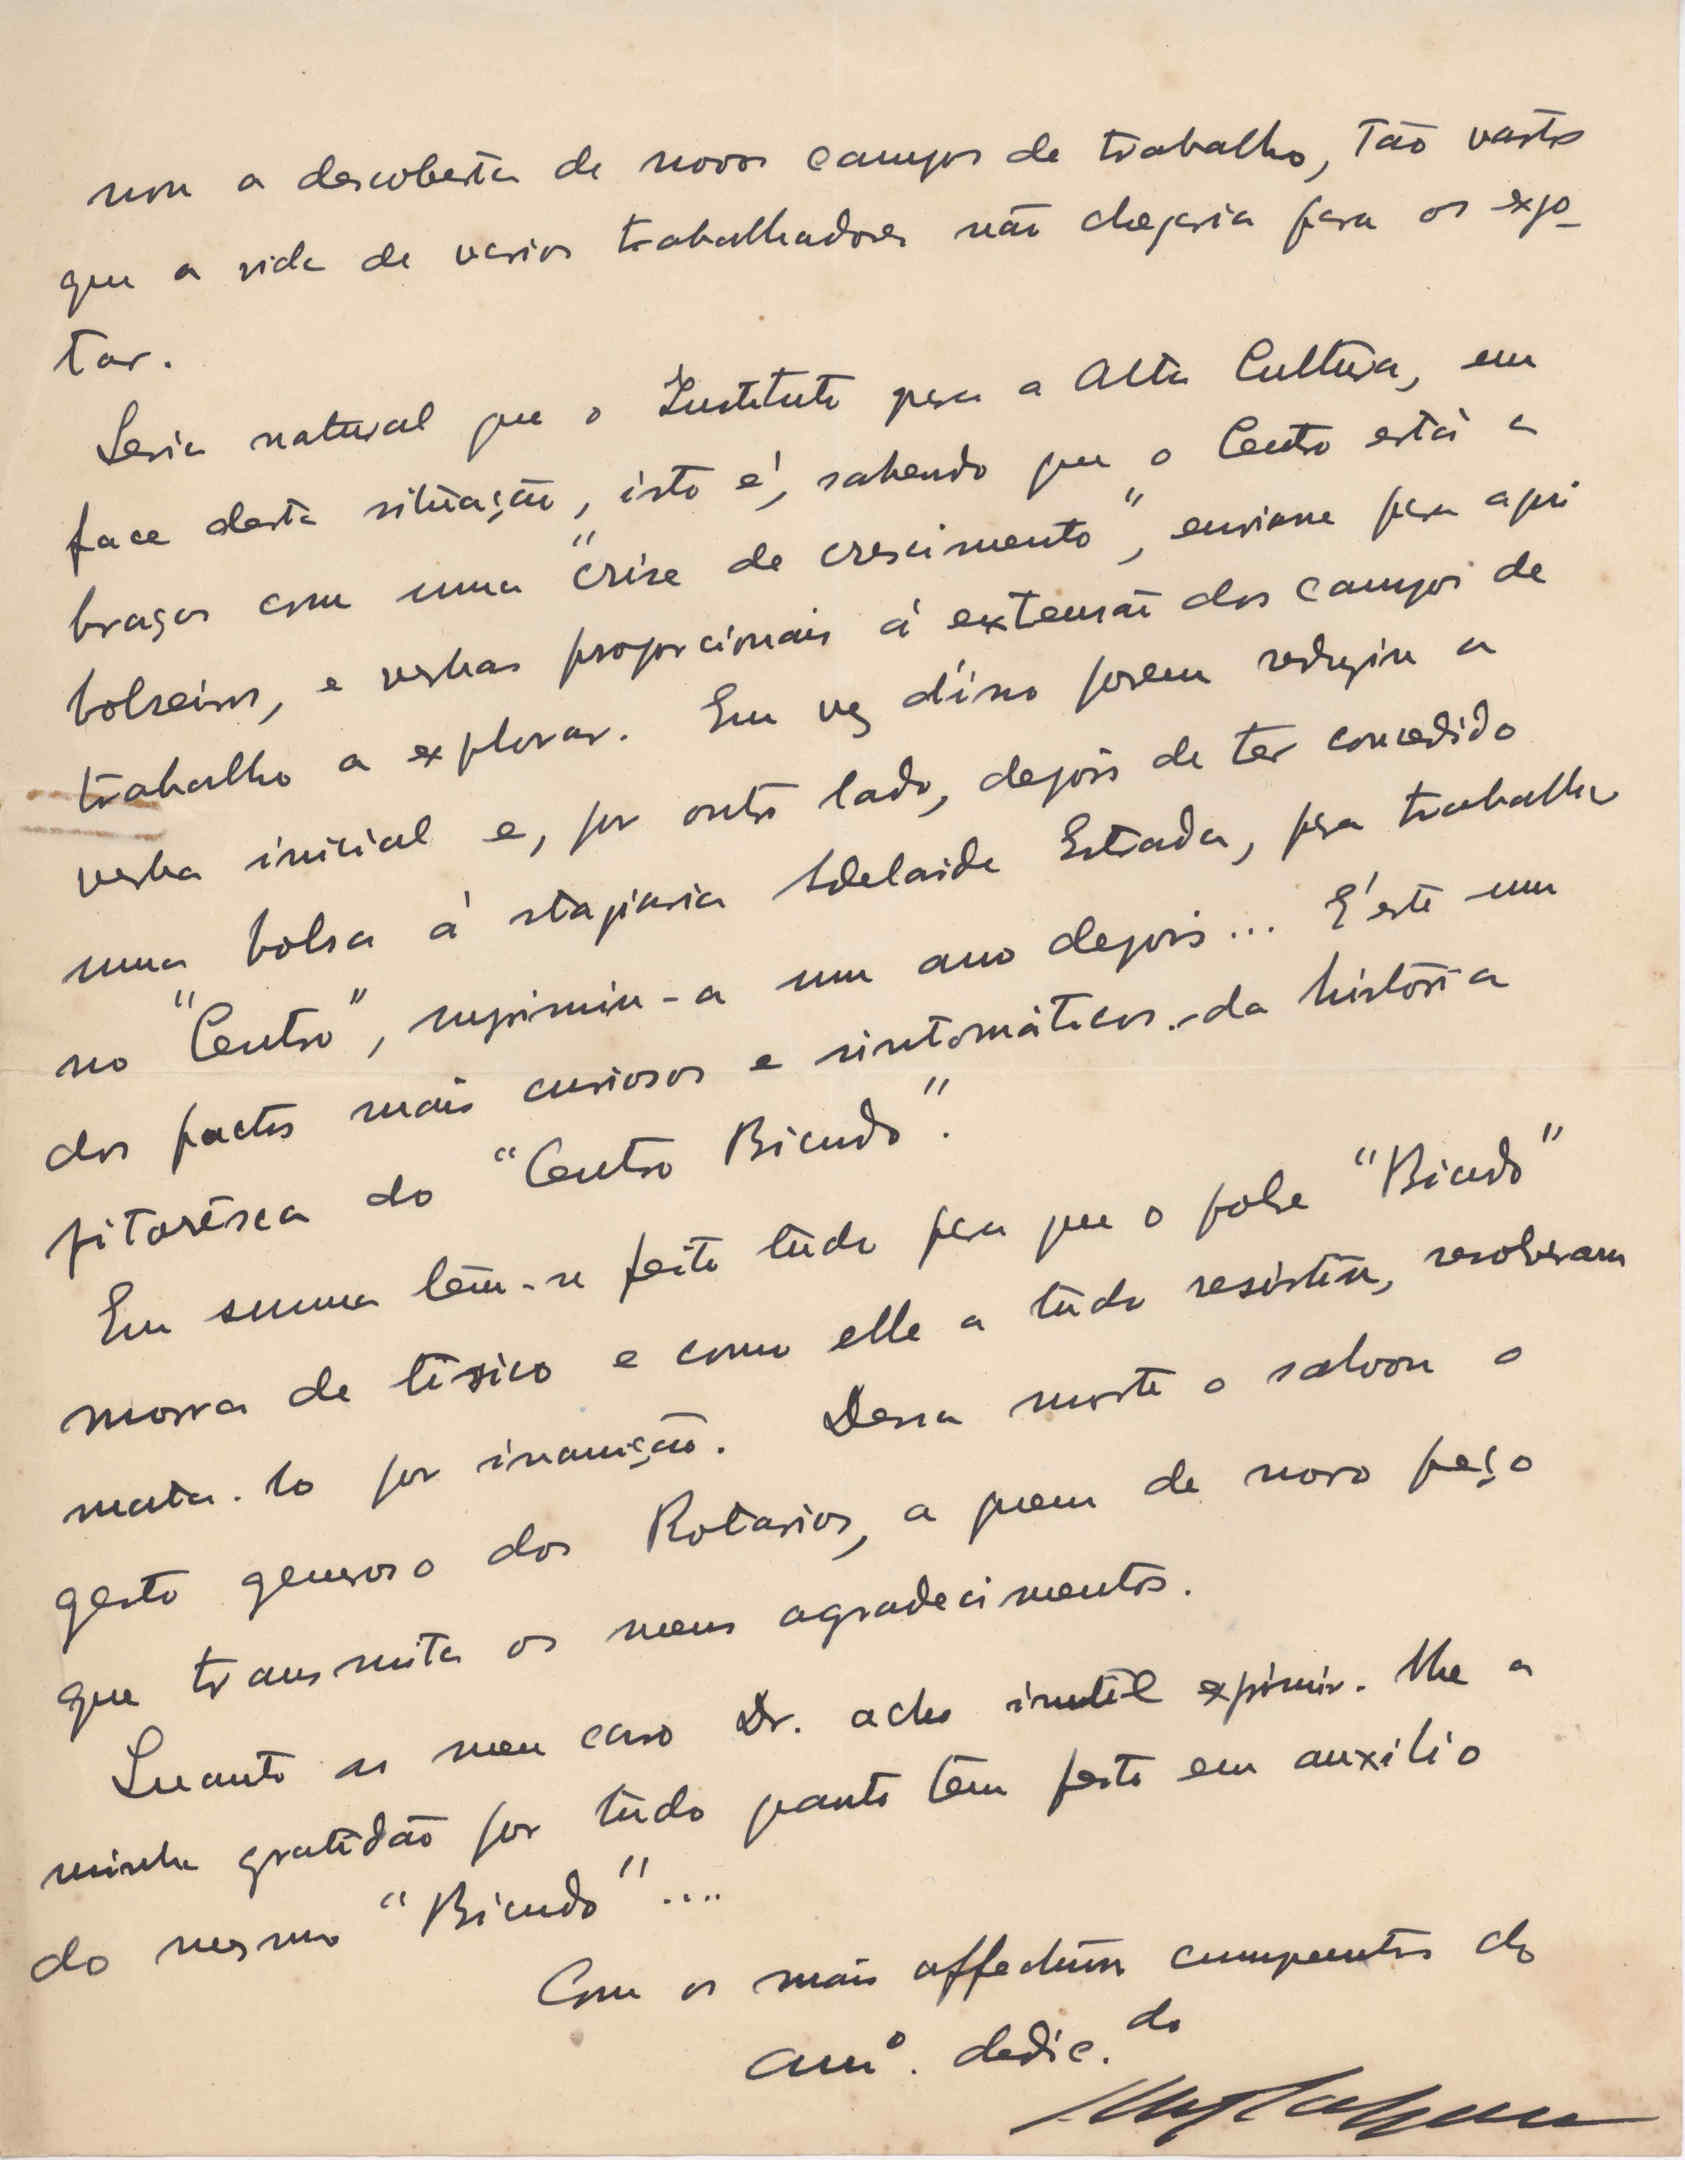 nou a descoberta de novos campos de trabalho, tão vastos
que a vida de varios trabalhadores não chegaria para os exgo-
tar.
Seria natural que o Instituto para a Alta Cultura, em
face desta situação, isto é, sabendo que o Centro está a
braços com uma "crise de crescimento", enviasse para aqui
bolseiros, e verbas proporcionais á extensão dos campos de
trabalho a explorar. Em vez d'isso porem reduziu a
verba inicial e, por outro lado, depois de ter concedido
uma bolsa á stagiaria Adelaide Estrada, para trabalhar
no "Centro", suprimiu-a um ano depois... É este um
dos factos mais curiosos e sintomáticos da história
pitorêsca do "Centro Bicudo".
Em summa têm-se feito tudo para que o pobre "Bicudo"
morra de tísico e como elle a tudo resistiu, resolveram
mata-lo por inanição. Dessa morte o salvou o
gesto generoso dos Rotarios, a quem de novo peço
que transmita os meus agradecimentos.
Quanto ao meu caro Dr. acho inutil exprimir-lhe a
minha gratidão por tudo quanto têm feito em auxilio
do mesmo "Bicudo"....
Com os mais affectuosos cumprimentos do
amº. dedic.do